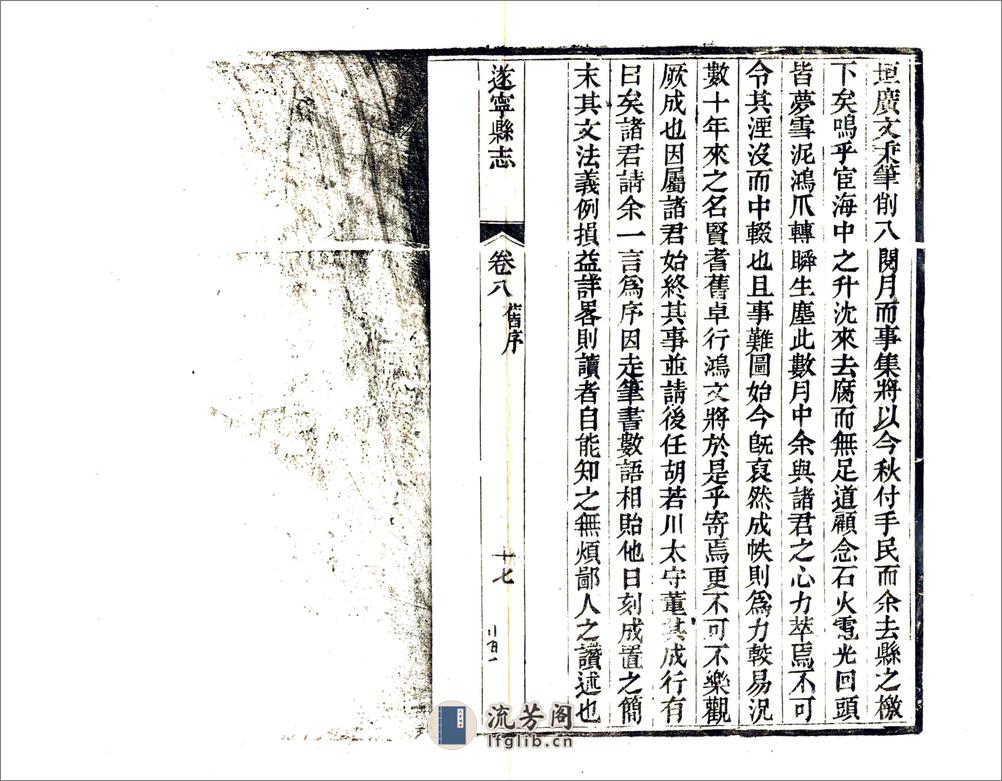 垣廣文秉筆削八閱月而事集將以今秋付手民而余去縣之檄
下矣嗚乎宦海中之升沈來去腐而無足道顧念石火電光回頭
皆夢雪泥鴻爪轉瞬生塵此數月中余與諸君之心力萃焉不可
令其湮沒而中輟也且事難圖始今旣裒然成帙則為力較易況
數十年來之名賢耆舊卓行鴻文將於是乎寄焉更不可不樂觀
厥成也因屬諸君始終其事並請後任胡若川太守董其成行有
日矣諸君請余一言爲序因走筆書數語相貽他日刻成置之簡
末其文法義例損益詳畧則讀者自能知之無煩鄙人之讚述也
遂寧縣志
卷八
舊序
十七
流芳阁
lfglib.cn